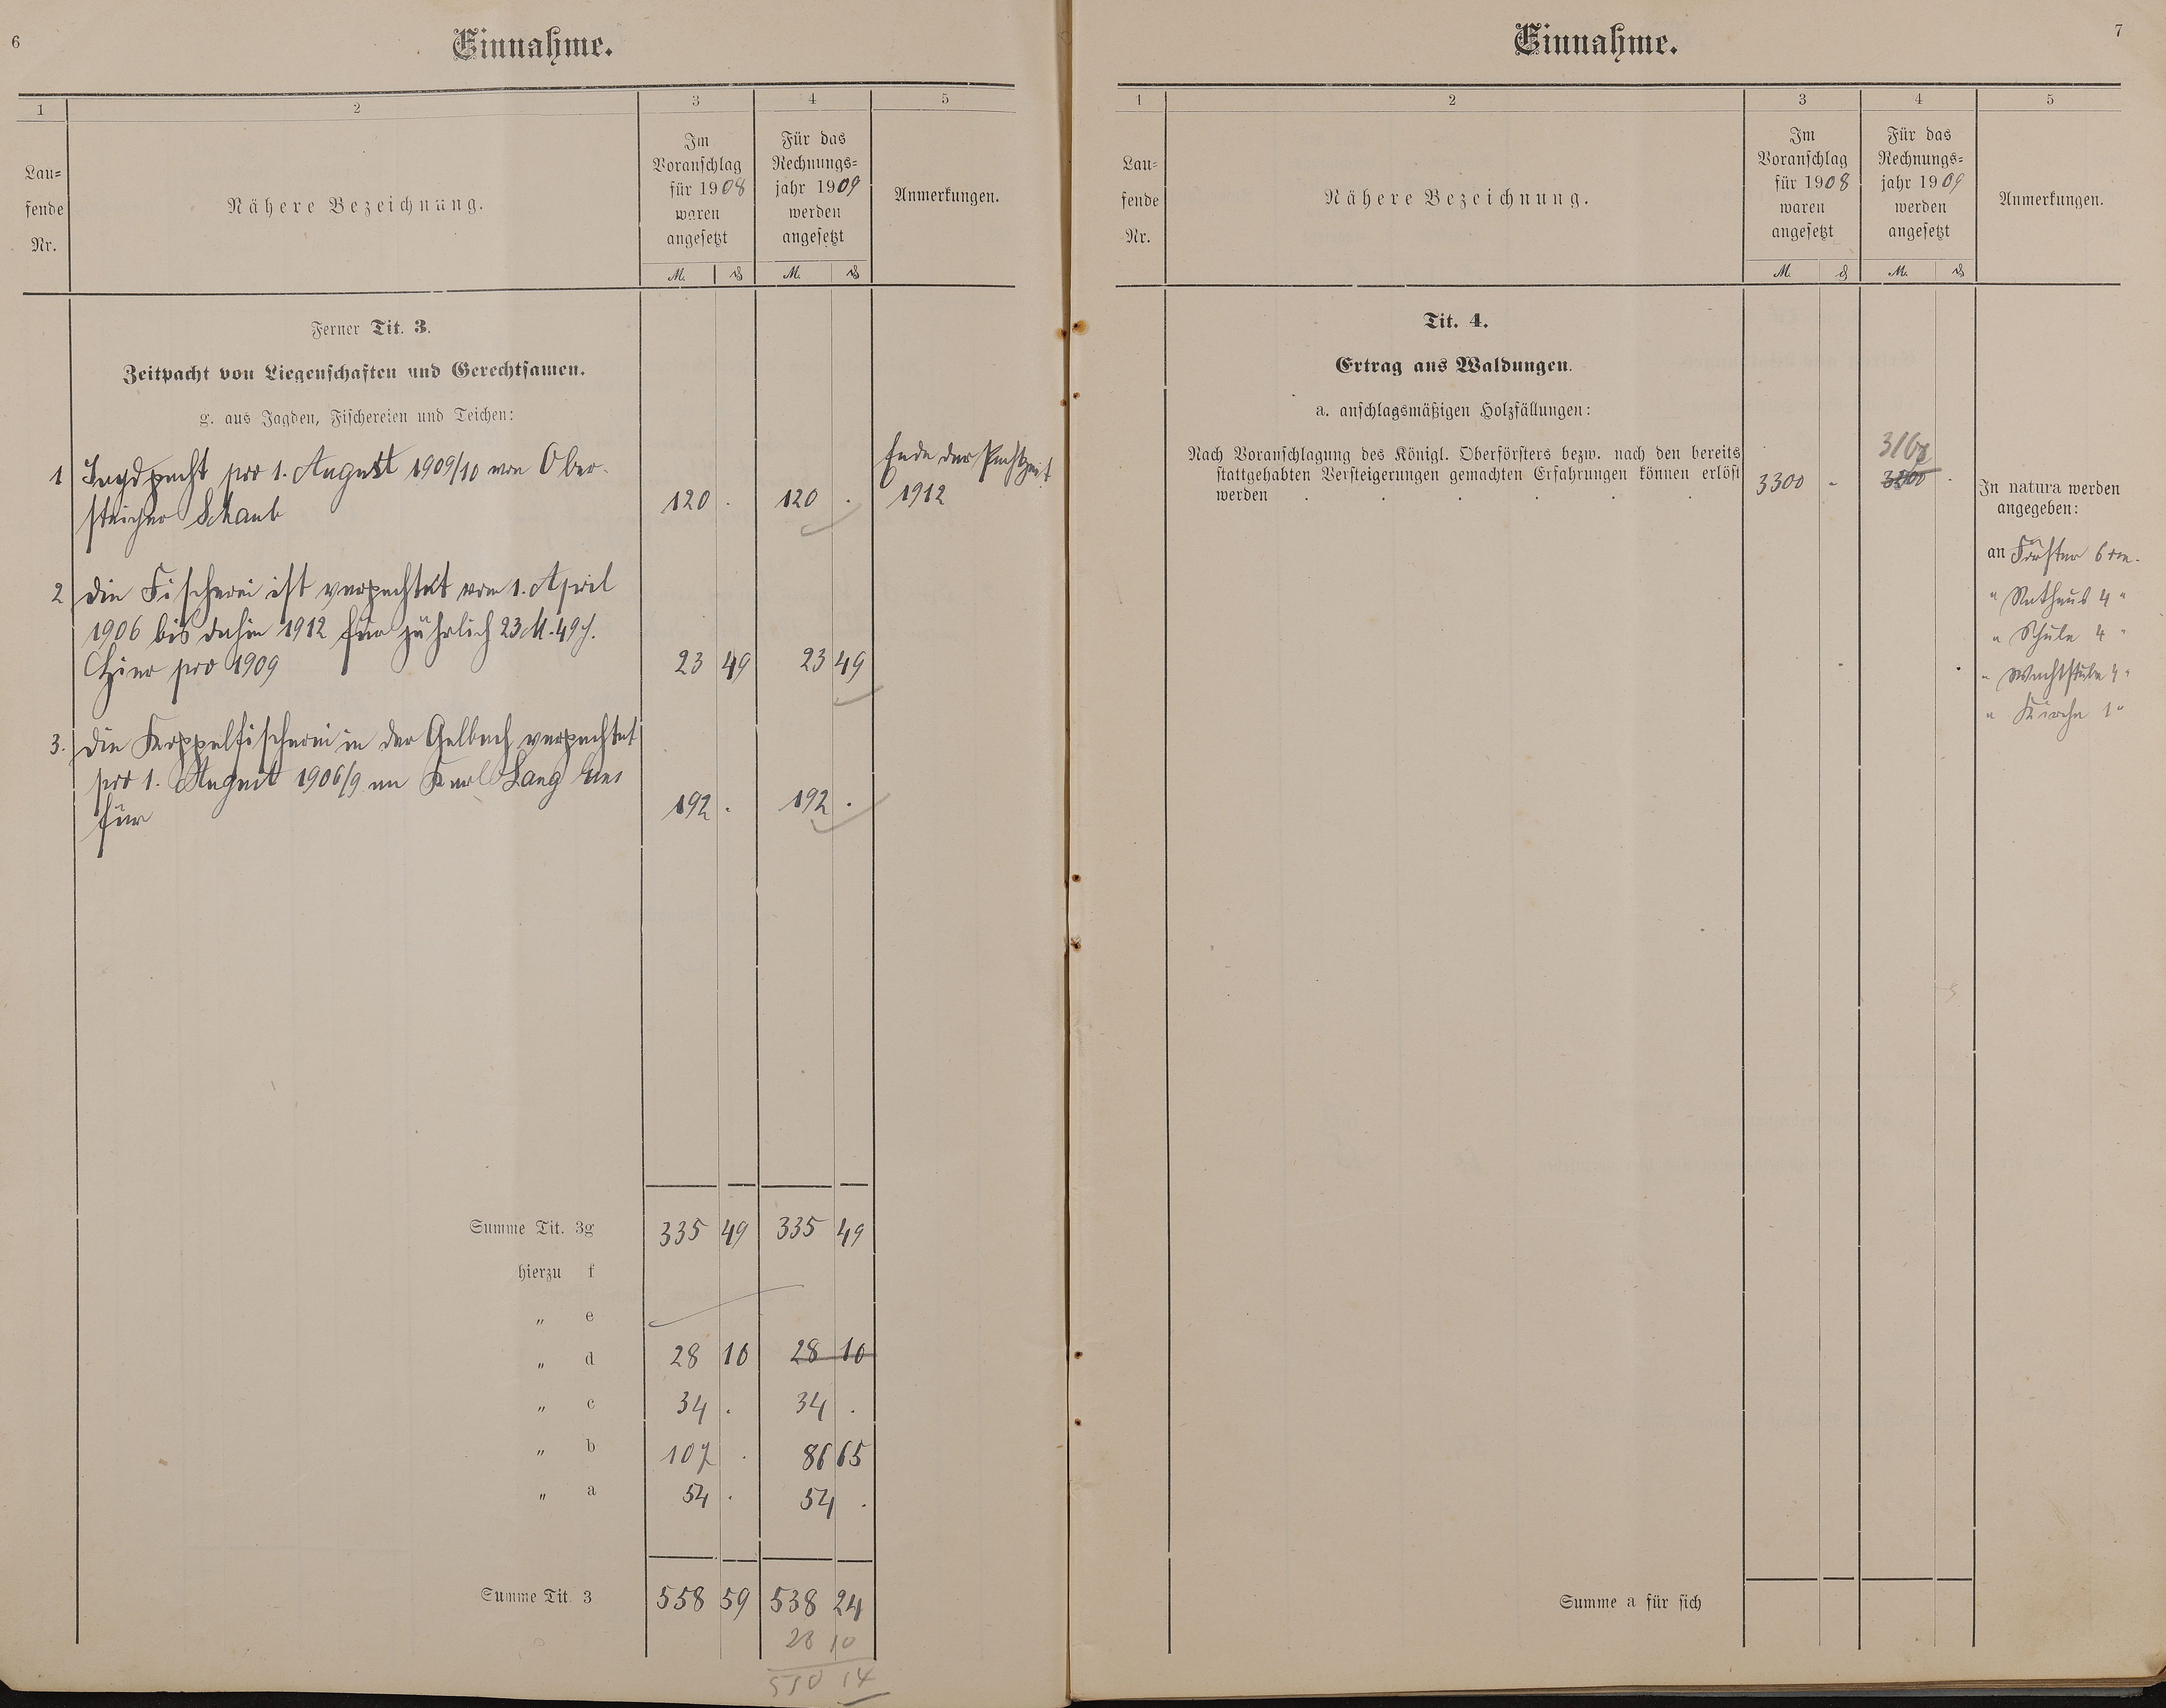 6
Einnahme.
1
2
3
4
5
Lau=
fende
Nr.
Nähere Bezeichnung.
Im
Voranschlag
für 1908
waren
angesetzt
Für das
Rechnungs=
jahr 1909
werden
angesetzt
Anmerkungen.
M. ₰ M. ₰
Ferner Tit. 3.
Zeitpacht von Liegenschaften und Gerechtsamen.
g. aus Jagden, Fischereien und Teichen:
1 Jagdpacht pro 1. August 1909/10 von Ober-
steiger Schaub 120 . 120 .
Ende der Pachtzeit
1912
2 die Fischerei ist verpachtet vom 1. April
1906 bis dahin 1912 für jährlich 23 M. 49 ₰.
Hier pro 1909 23 49 23 49
3. die Koppelfischerei in der Gelbach verpachtet
pro 1. August 1906/9 an Karl Lang
für 192 . 192 .
Summe Tit. 3g 335 49 335 49
hierzu f
„ e
„ d 28 10 28 10
„ c 34 . 34 .
„ b 107 . 86 65
„ a 54 . 54 .
Summe Tit. 3 558 59 538 24
28 10
510 14
7
Einnahme.
1
2
3
4
5
Lau=
fende
Nr.
Nähere Bezeichnung.
Im
Voranschlag
für 1908
waren
angesetzt
Für das
Rechnungs=
jahr 1909
werden
angesetzt
Anmerkungen.
M. ₰ M. ₰
Tit. 4.
Ertrag aus Waldungen.
a. anschlagsmäßigen Holzfällungen:
Nach Voranschlagung des Königl. Oberförsters bezw. nach den bereits
stattgehabten Versteigerungen gemachten Erfahrungen können erlöst
werden . . . . . . 3300 -
In natura werden
angegeben:
an Förster 6 rm.
" Rathaus 4 "
" Schule 4 "
" Wachtstube 4 "
" Kirche 1 "
Summe a für sich